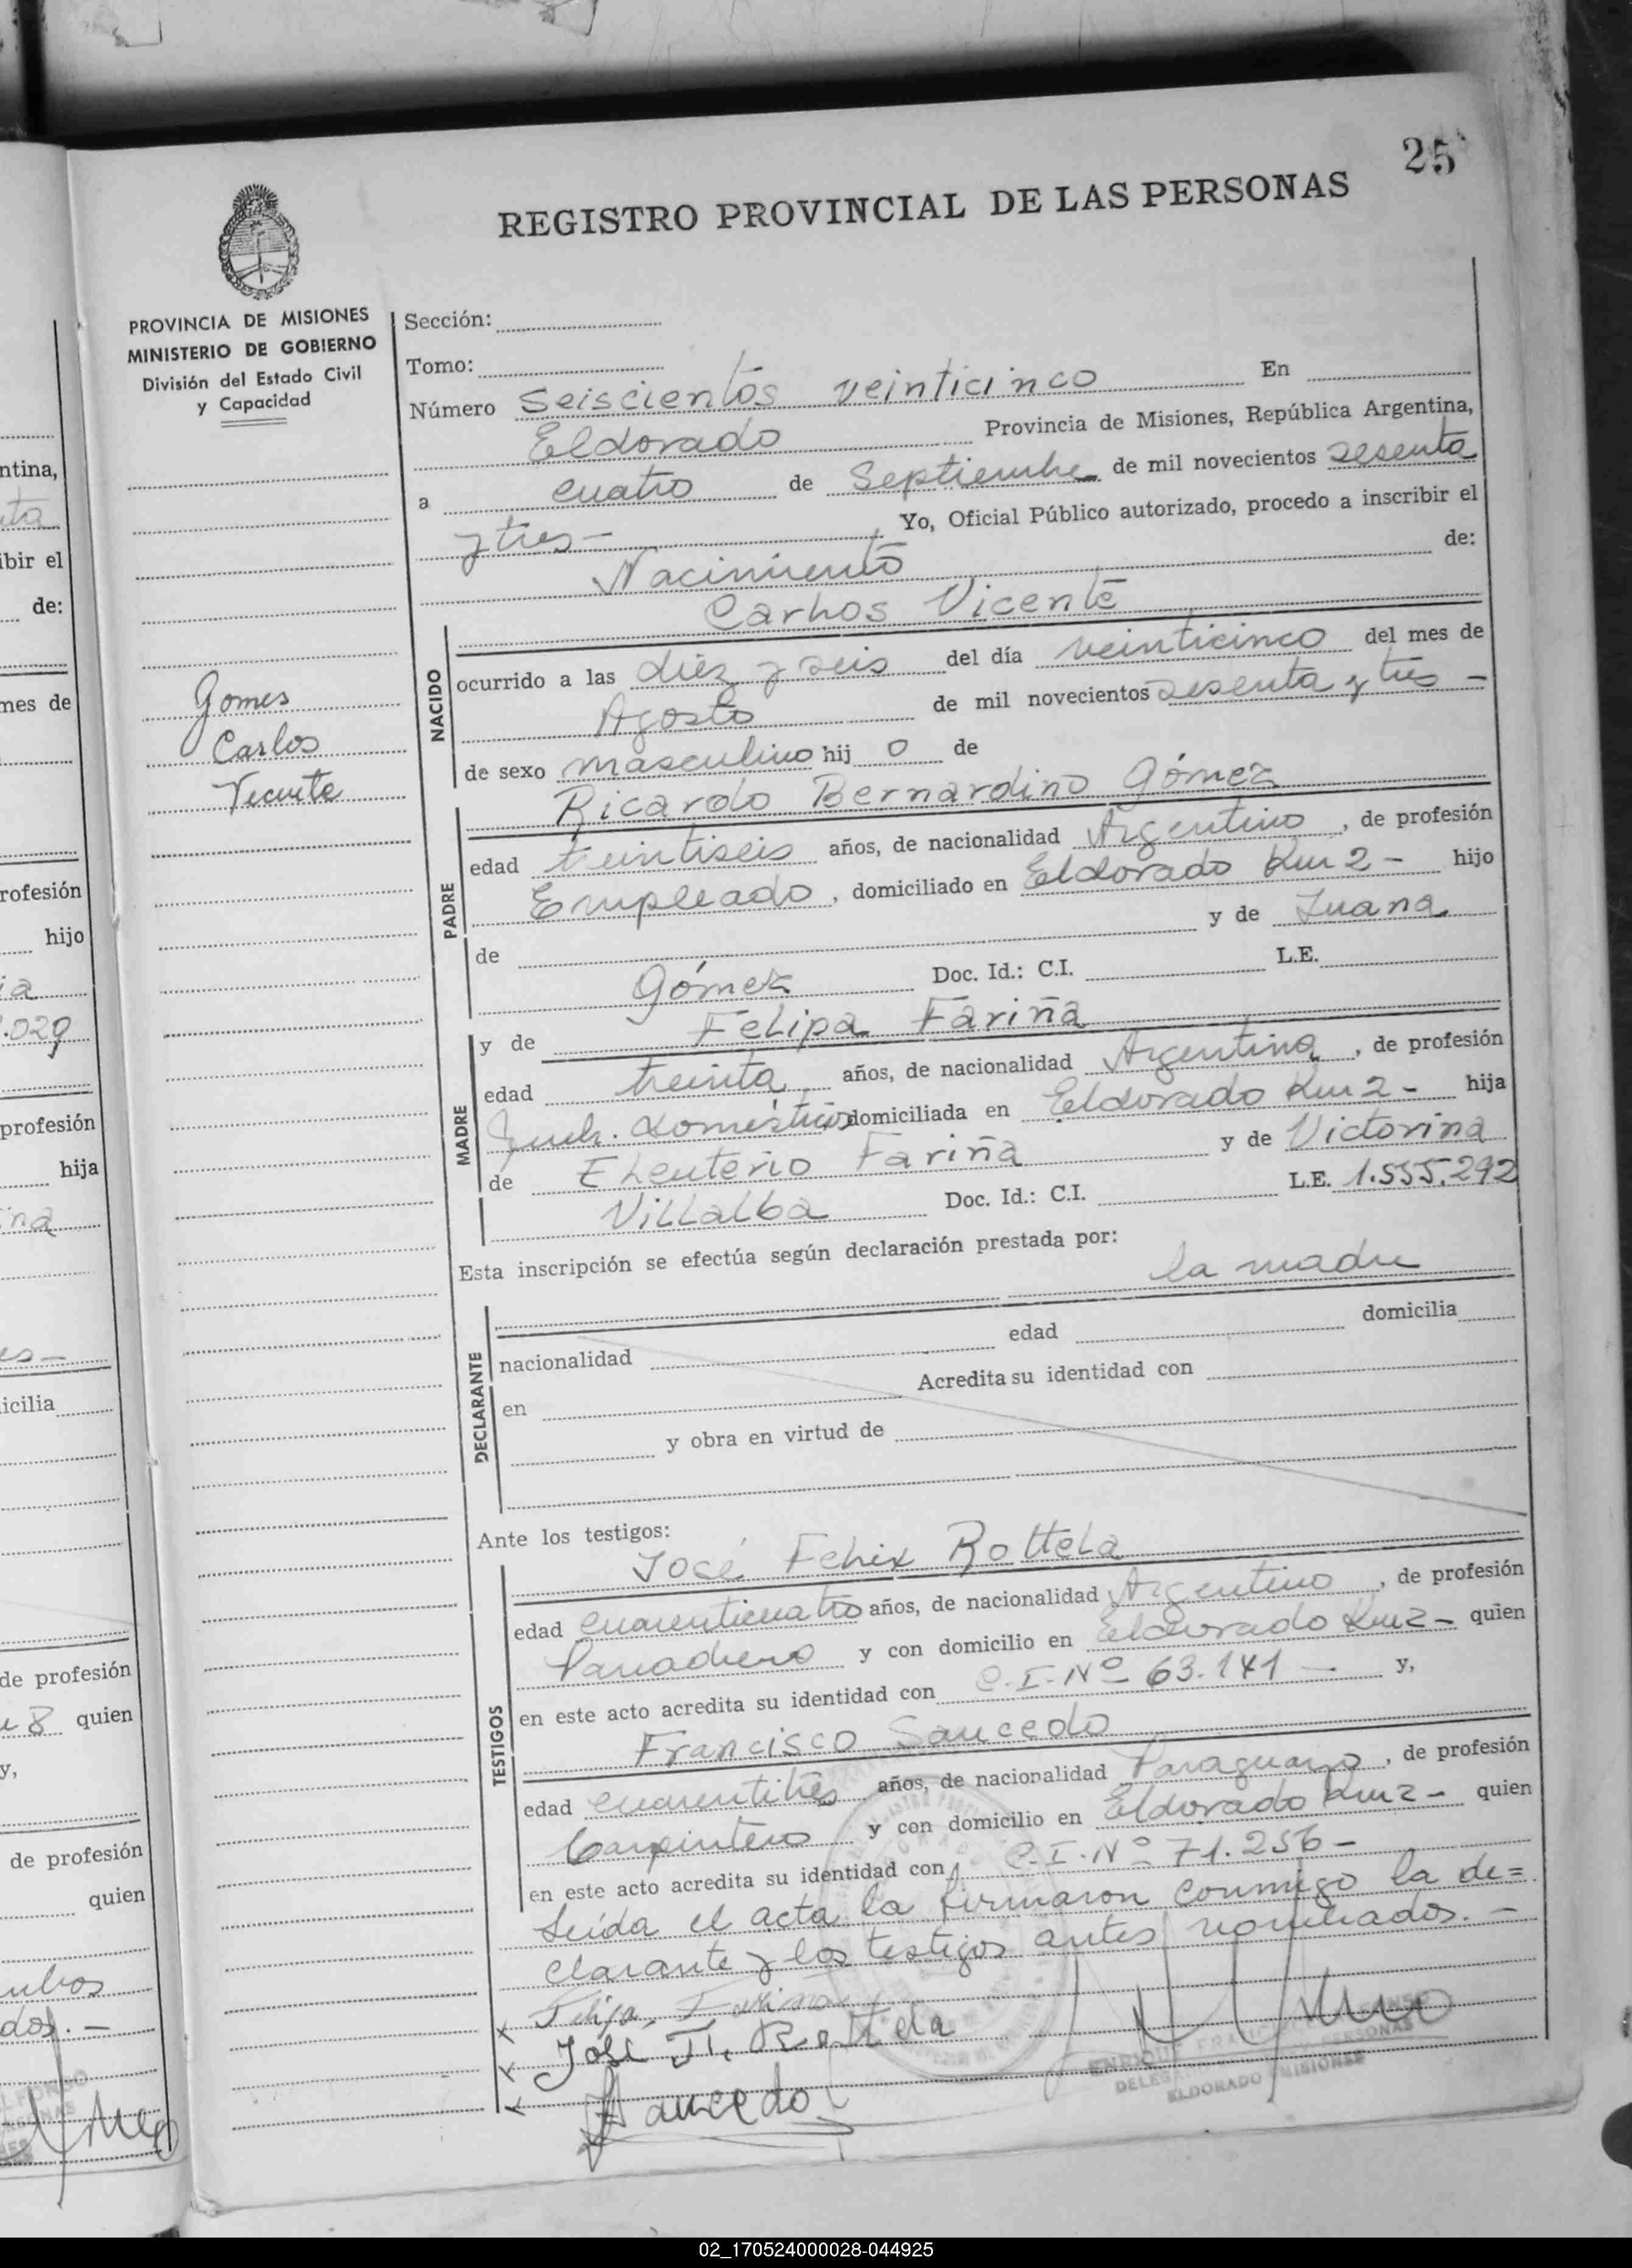 25
REGISTRO PROVINCIAL DE LAS PERSONAS
PROVINCIA DE MISIONES
MINISTERIO DE GOBIERNO
División del Estado Civil
y Capacidad
Gomes
Carlos
Vicente
Sección:
Tomo:
Número Seiscientos veinticinco En
Eldorado Provincia de Misiones, República Argentina,
a cuatro de Septiembre de mil novecientos sesenta
y tres- Yo, Oficial Público autorizado, procedo a inscribir el
Nacimiento de:
Carlos Vicente
NACIDO
ocurrido a las diez y seis del día veinticinco del mes de
Agosto de mil novecientos sesenta y tres -
de sexo masculino hij o de
Ricardo Bernardino Gómez
PADRE
edad treintiseis años, de nacionalidad Argentino, de profesión
Empleado, domiciliado en Eldorado Km 2 - hijo
de y de Juana
Gómez Doc. Id.: C.I. L.E.
y de Felipa Fariña
MADRE
edad treinta años, de nacionalidad Argentina, de profesión
domésticos domiciliada en Eldorado Km 2 - hija
de Eleuterio Fariña y de Victorina
Villalba Doc. Id.: C.I. L.E. 1.555.292
Esta inscripción se efectúa según declaración prestada por:
la madre
DECLARANTE
edad domicilia
nacionalidad
Acredita su identidad con
en
y obra en virtud de
Ante los testigos:
José Felix Rottela
TESTIGOS
edad cuarenticuatro años, de nacionalidad Argentino, de profesión
Panadero y con domicilio en Eldorado Km 2 - quien
en este acto acredita su identidad con C.I. Nº 63.141 - y,
Francisco Saucedo
edad cuarentitrés años, de nacionalidad Paraguayo, de profesión
Carpintero y con domicilio en Eldorado Km 2 - quien
en este acto acredita su identidad con C.I. Nº 71.256 -
Leída el acta la firmaron conmigo la de=
clarante y los testigos antes nombrados. -
Felipa Fariña
José F. Rottela
Saucedo
ELDORADO MISIONES
ntina,
ibir el
de:
mes de
rofesión
hijo
profesión
hija
icilia
de profesión
8 quien
y,
de profesión
quien
02_170524000028-044925